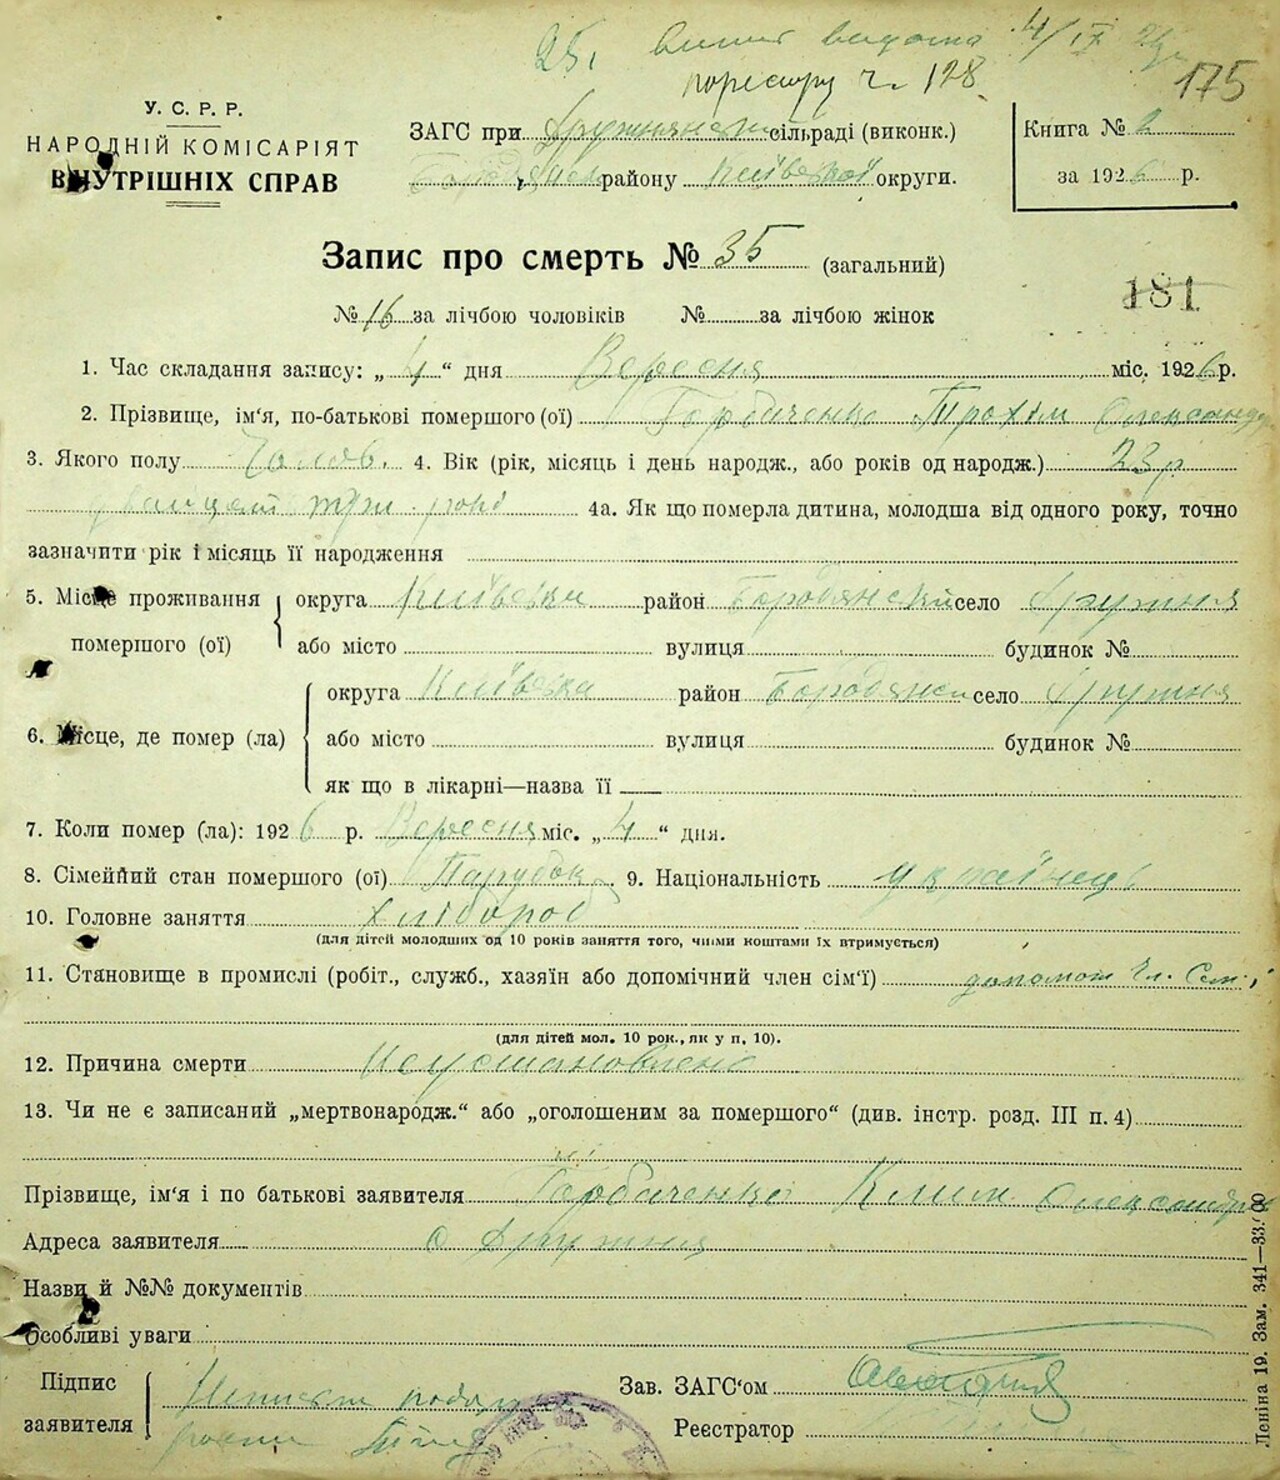 25. витяг видано 4/IX 26 р.
по реєстру ч. 128
175
У. С. Р. Р.
НАРОДНІЙ КОМІСАРІЯТ
ВНУТРІШНІХ СПРАВ
ЗАГС при Дружнянській сільраді (виконк.)
Бородянськ району Київської округи.
Книга № 2
за 1926 р.
Запис про смерть № 35 (загальний)
181
№ 16 за лічбою чоловіків № за лічбою жінок
1. Час складання запису: „ 4 “ дня Вересня міс. 1926 р.
2. Прізвище, ім‘я, по-батькові помершого (ої) Горбаченко Трохим Олександр
3. Якого полу Чолов. 4. Вік (рік, місяць і день народж., або років од народж.) 23 р
двацять три роки 4а. Як що померла дитина, молодша від одного року, точно
зазначити рік і місяць її народження
5. Місце проживання помершого (ої) округа Київська район Бородянський село Дружня
або місто вулиця будинок №
6. Місце, де помер (ла) округа Київська район Бородянськ село Дружня
або місто вулиця будинок №
як що в лікарні—назва її
7. Коли помер (ла): 1926 р. Вересня міс. „ 4 “ дня.
8. Сімейний стан помершого (ої) Парубок 9. Національність українець
10. Головне заняття хлібороб
(для дітей молодших од 10 років заняття того, чиїми коштами їх втримується)
11. Становище в промислі (робіт., служб., хазяїн або допомічний член сім‘ї) допомог чл. сем.
(для дітей мол. 10 рок., як у п. 10).
12. Причина смерти Неустановлено
13. Чи не є записаний „мертвонародж.“ або „оголошеним за помершого“ (див. інстр. розд. III п. 4)
Прізвище, ім‘я і по батькові заявителя Горбаченко Клим Олександр
Адреса заявителя с Дружня
Назви й №№ документів
Особливі уваги
Підпис заявителя
Зав. ЗАГС‘ом
Реєстратор
Леніна 19. Зам. 341—33.